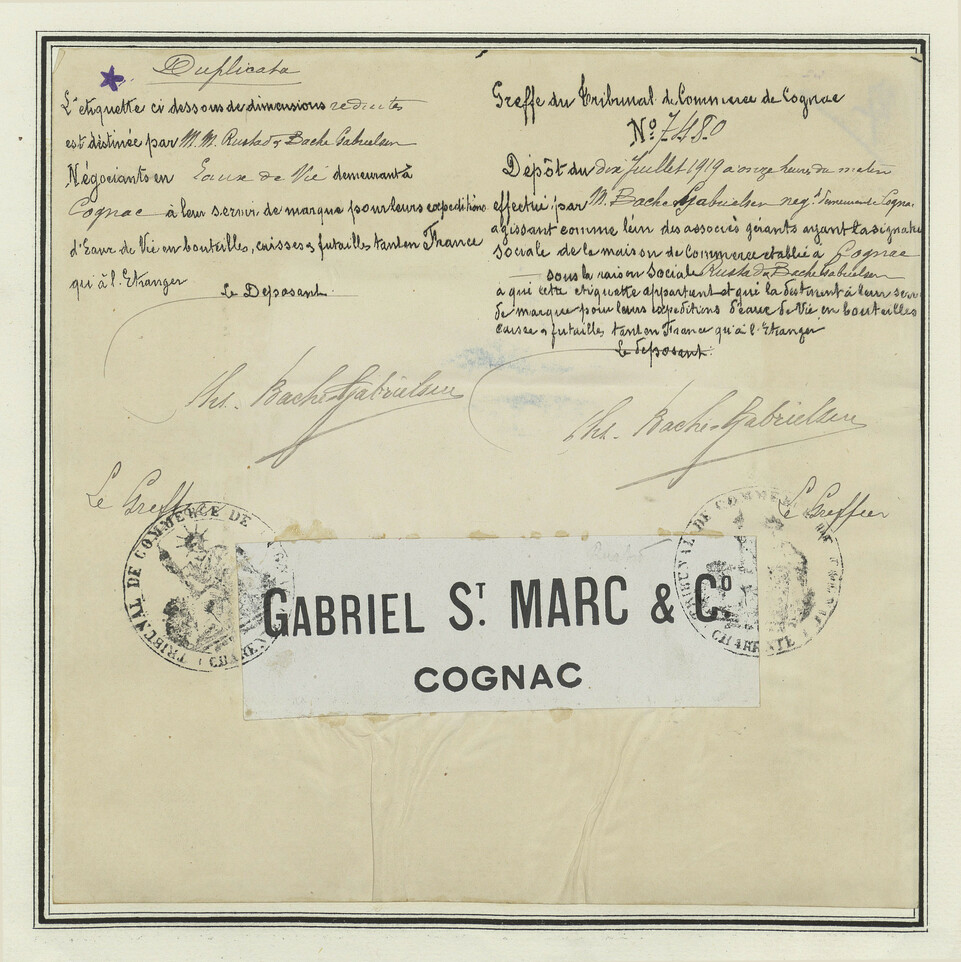 Duplicata
L'etiquette ci dessous de dimensions reduites
est destinée par M.M. Rustad & Bache Gabrielsen
Négociants en Eaux de Vie demeurant à
Cognac à leur servir de marque pour leurs expeditions
d'Eaux de Vie en bouteilles, caisses & futailles tant en France
qu'à l'Etranger
Le Deposant.
Ths. Bache-Gabrielsen
Le Greffier
Greffe du Tribunal de Commerce de Cognac
No 7480
Dépôt du dix Juillet 1919 à onze heures du matin
effectué par M. Bache Gabrielsen negt demeurant à Cognac
agissant comme l'un des associés gérants ayant la signature
sociale de la maison de Commerce etablie à Cognac
sous la raison Sociale Rustad & Bache Gabrielsen
à qui cette etiquette appartient et qui la destinent à leur servir
de marque pour leurs expeditions d'eaux de Vie en bouteilles
caisses & futailles tant en France qu'à l'Etranger
Le deposant.
Ths. Bache-Gabrielsen
Le Greffier
TRIBUNAL DE COMMERCE DE
CHARENTE
TRIBUNAL DE COMMERCE
CHARENTE
GABRIEL ST. MARC & Co.
COGNAC